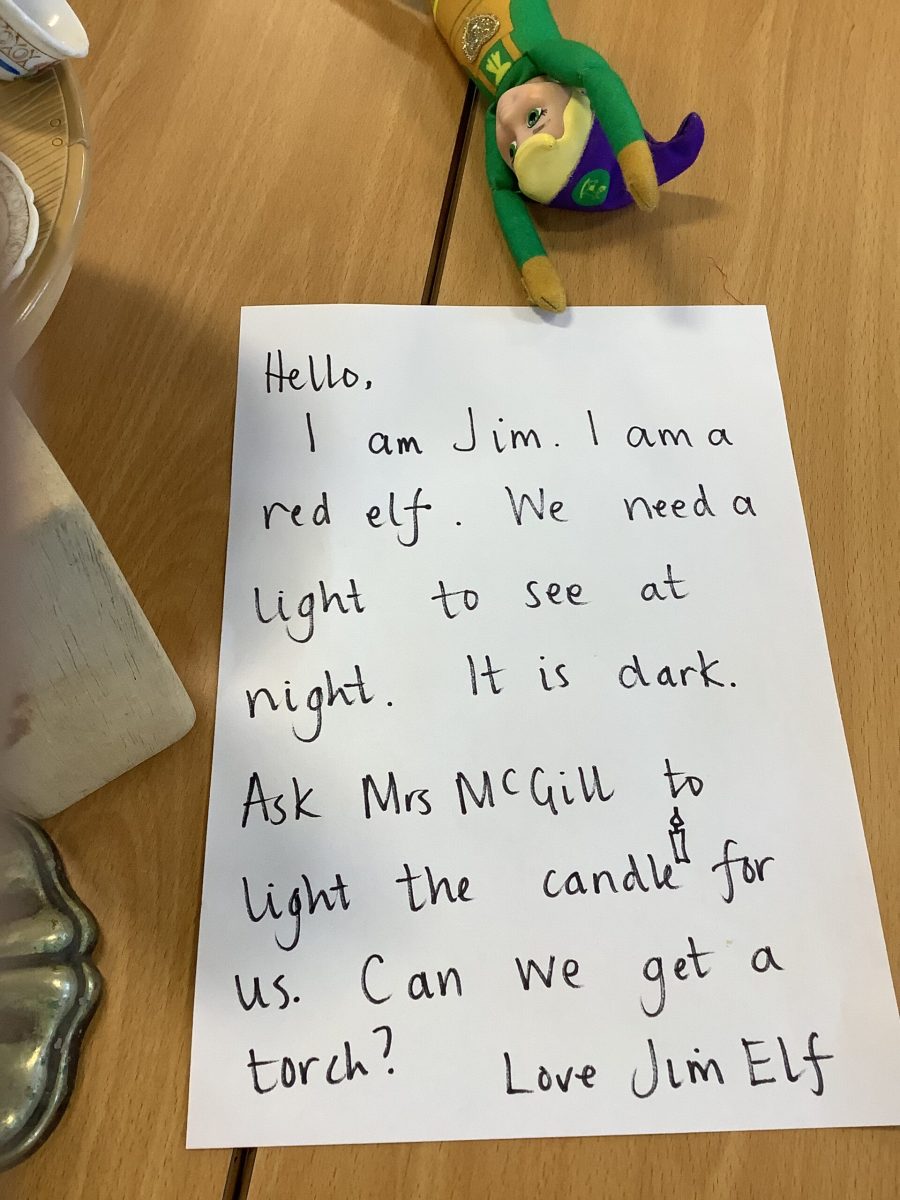 Hello,
I am Jim. I am a
red elf. We need a
light to see at
night. It is dark.
Ask Mrs McGill to
light the candle for
us. Can we get a
torch? Love Jim Elf